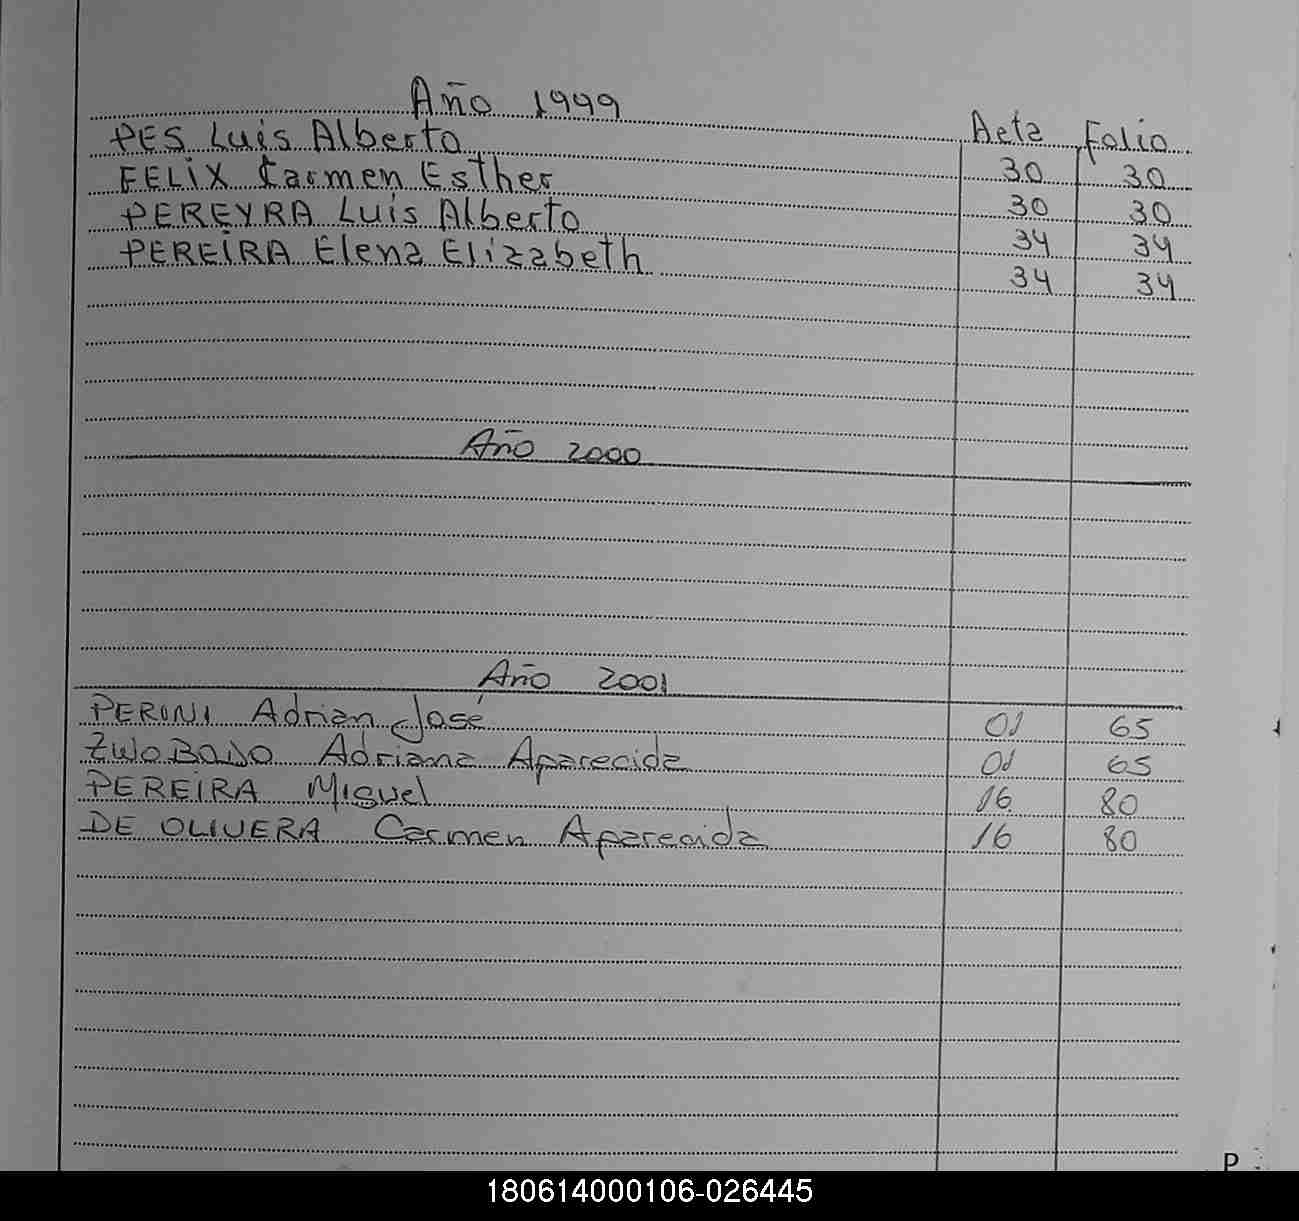 Año 1999
Acta Folio
PES Luis Alberto 30 30
FELIX Carmen Esther 30 30
PEREYRA Luis Alberto 34 34
PEREIRA Elena Elizabeth 34 34
Año 2000
Año 2001
PERINI Adrian José 01 65
Adriana Aparecida 01 65
PEREIRA Miguel 16 80
DE OLIVERA Carmen Aparecida 16 80
P
180614000106-026445